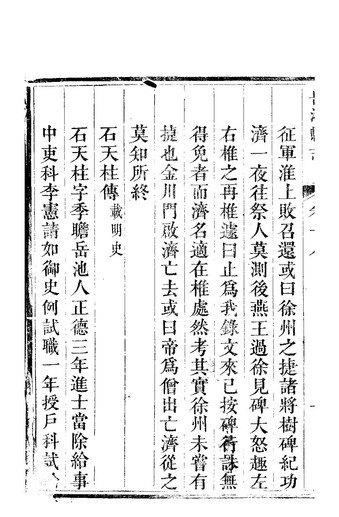 征軍淮上敗召還或曰徐州之捷諸將樹碑紀功
濟一夜往祭人莫測後燕王過徐見碑大怒趣左
右椎之再椎遽曰止爲我錄文來已按碑行誅無
得免者而濟名適在椎處然考其實徐州未嘗有
捷也金川門啟濟亡去或曰帝爲僧出亡濟從之
莫知所終
石天柱傳 載明史
石天柱字季瞻岳池人正德三年進士當除給事
中吏科李憲請如御史例試職一年授戶科試